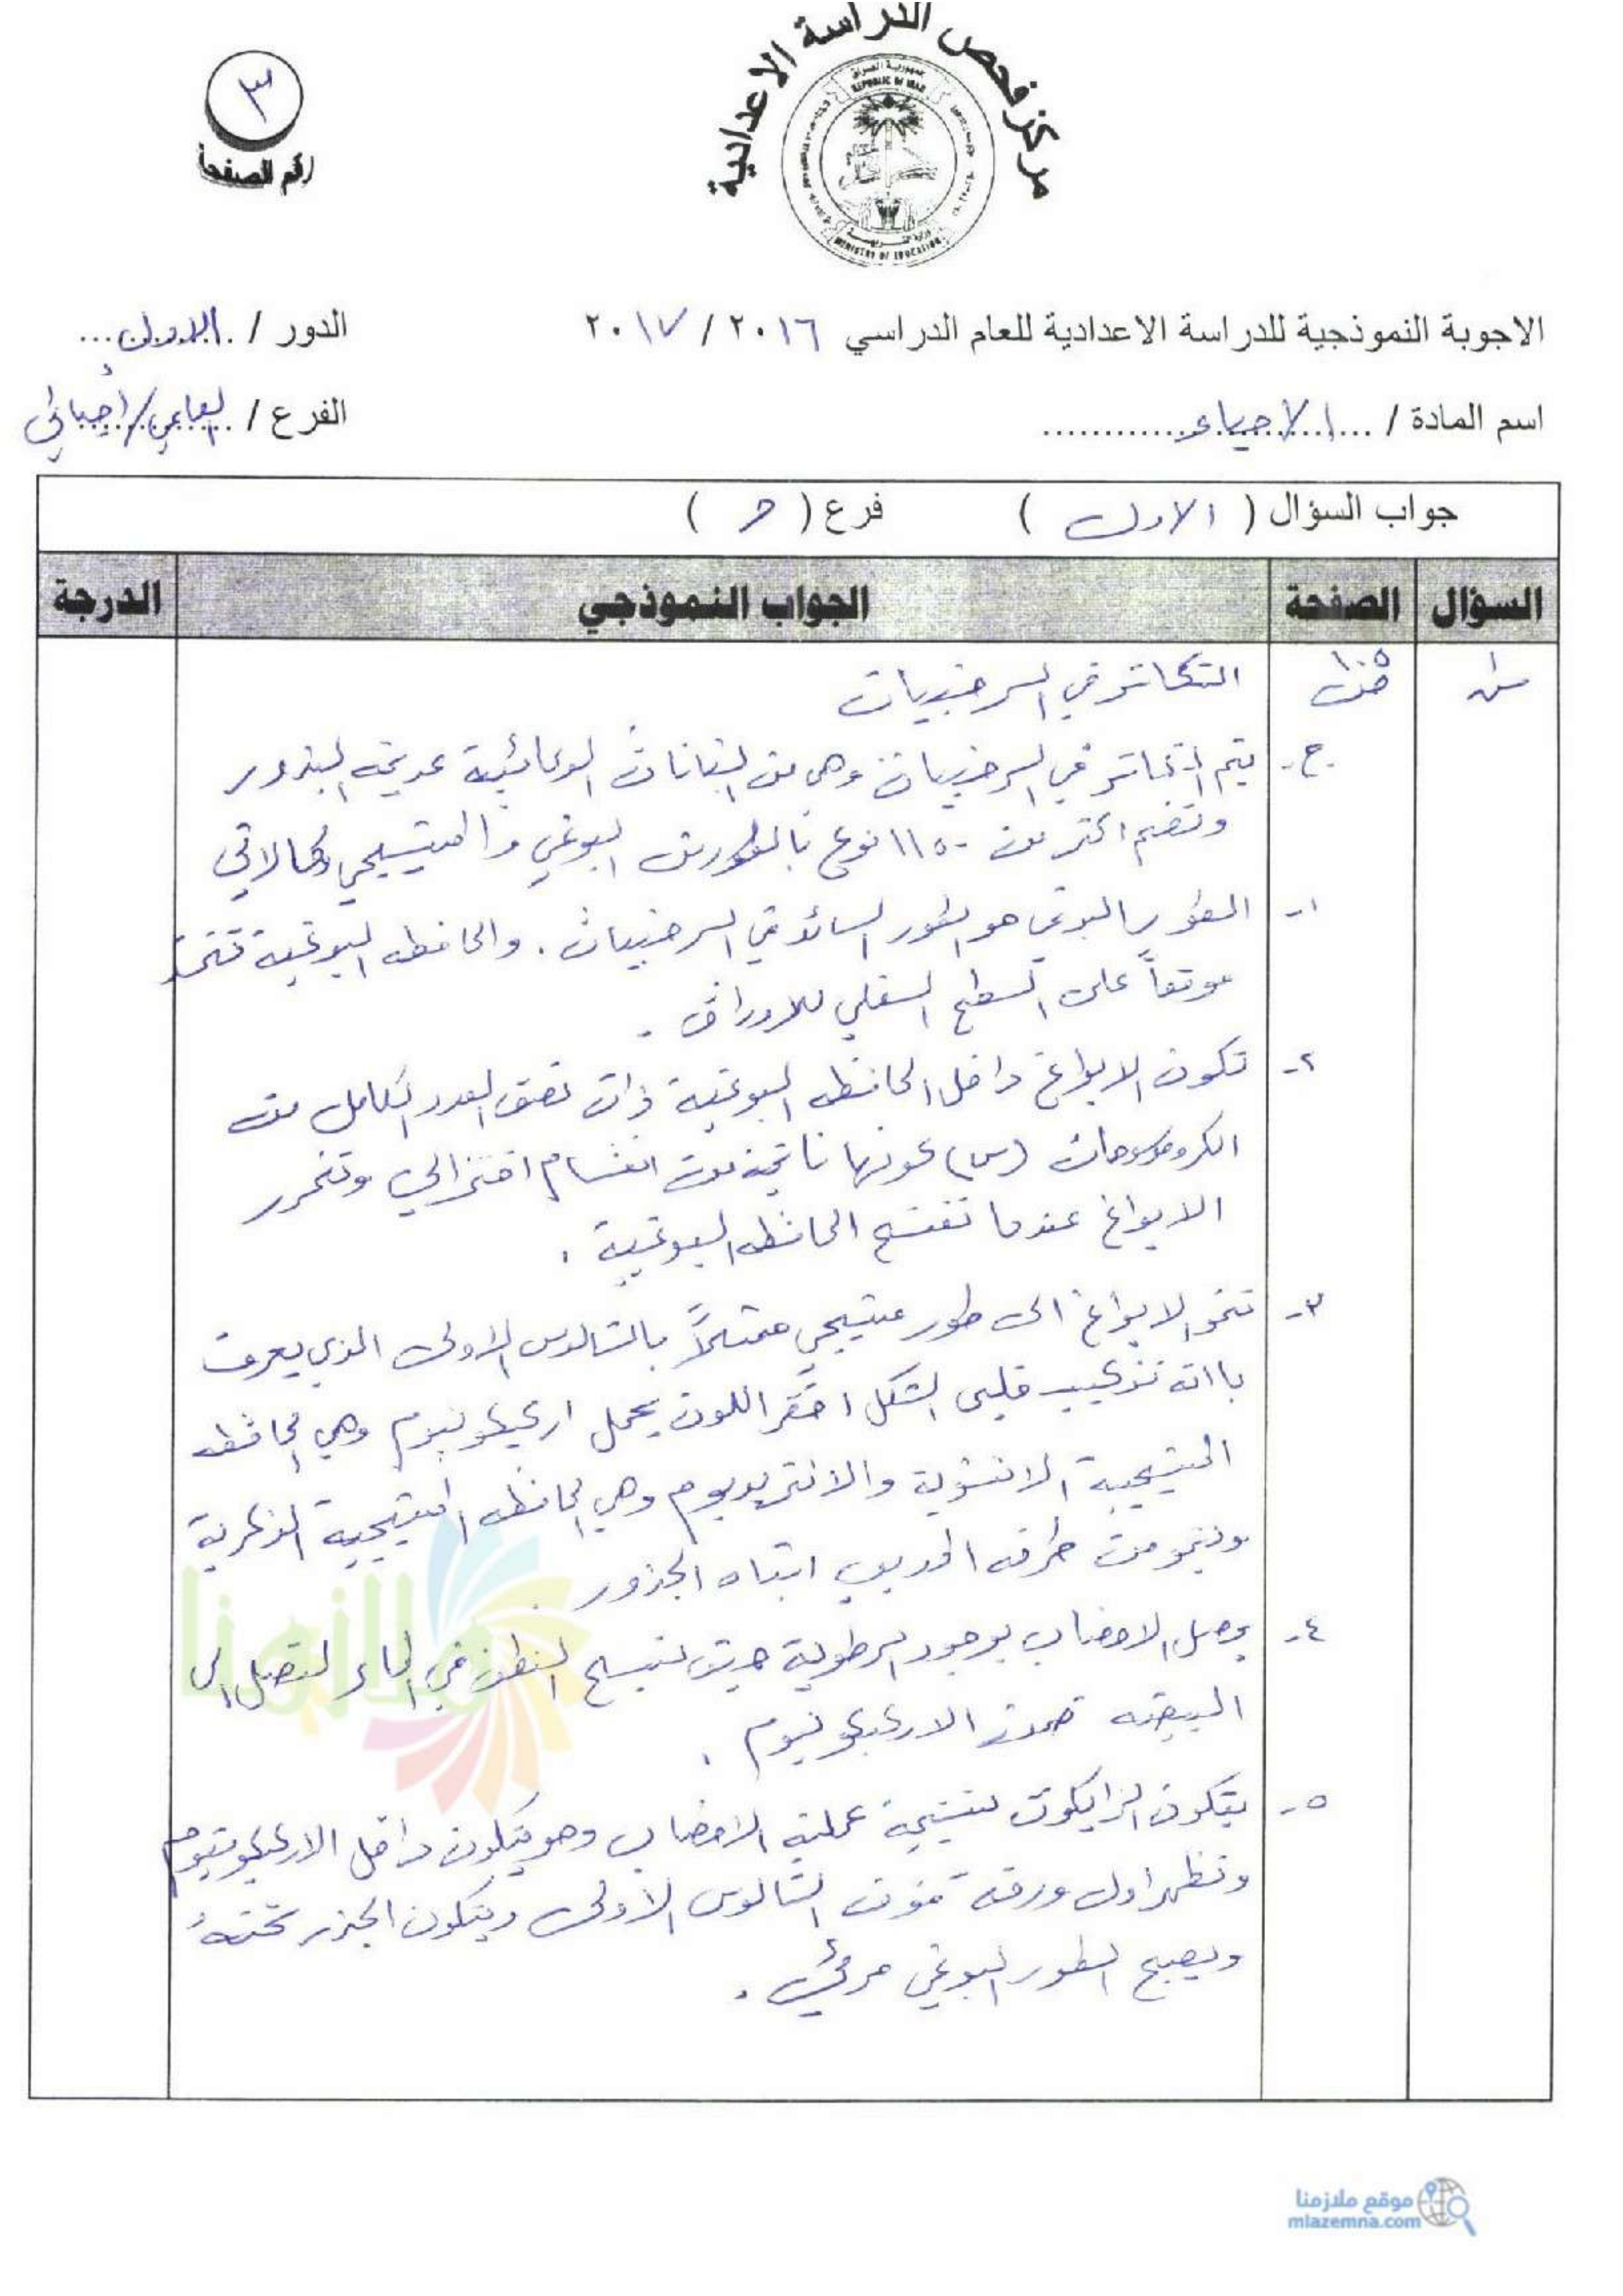 مركز فحص الدراسة الاعدادية
جمهورية العراق
REPUBLIC OF IRAQ
وزارة التربية
MINISTRY OF EDUCATION
٣
رقم الصفحة
الاجوبة النموذجية للدراسة الاعدادية للعام الدراسي ٢٠١٦ / ٢٠١٧
الدور / الاول
اسم المادة / الاحياء
الفرع / العلمي / احيائي
جواب السؤال ( الاول ) فرع ( ج )
السؤال الصفحة الجواب النموذجي الدرجة
س١ ص١٠٥ التكاثر في السرخسيات
ج- يتم التكاثر في السرخسيات وهي من النباتات الوعائية عديمة البذور
وتضم اكثر من ١١٥٠٠ نوع بالطورين البوغي والمشيجي وكما لاتي
١- الطور البوغي هو الطور السائد في السرخسيات . والحافظه البوغية تتخذ
موقعاً على السطح السفلي للاوراق .
٢- تكون الابواغ داخل الحافظه البوغية ذات نصف العدد الكامل من
الكروموسومات (س) كونها ناتجة من انقسام اختزالي وتتحرر
الابواغ عندما تفتح الحافظه البوغية .
٣- تنمو الابواغ الى طور مشيجي متمثلاً بالثالوس الاولي الذي يعرف
باانه تركيب قلبي الشكل اخضر اللون يحمل اركيكونيوم وهي الحافظه
المشيجية الانثوية والانثريديوم وهي الحافظه المشيجية الذكرية
وينمو من طرفه المدبب اشباه الجذور .
٤- يحصل الاخصاب بوجود الرطوبة حيث تسبح النطف في الماء لتصل الى
البيضه ضمن الاركيكونيوم .
٥- يتكون الزايكوت نتيجة عملية الاخصاب وهو يتكون داخل الاركيكونيوم
وتظهر اول ورقة فوق الثالوس الاولي ويتكون الجذر تحته
ويصبح الطور البوغي مرئي .
ملازمنا
موقع ملازمنا
mlazemna.com